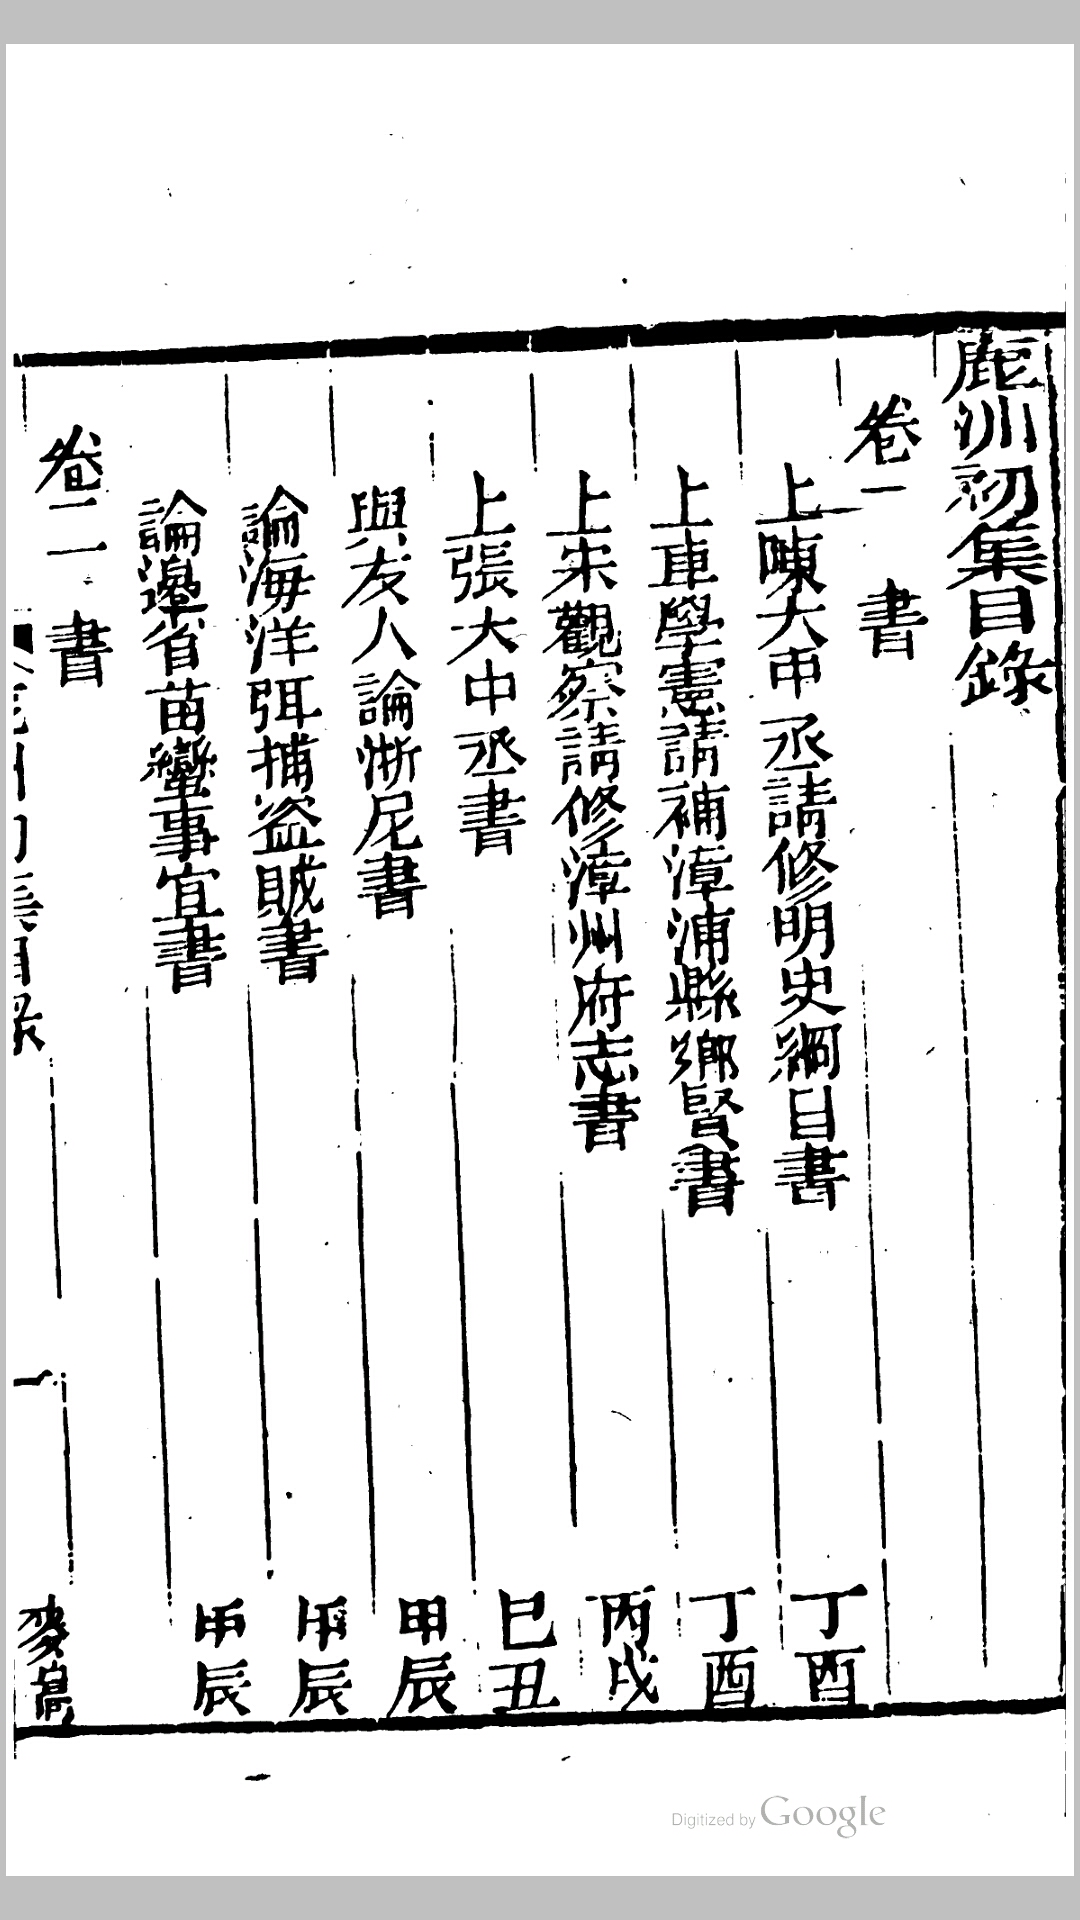 鹿洲初集目錄
卷一　書
上陳大中丞請修明史綱目書　丁酉
上車學憲請補漳浦縣鄉賢書　丁酉
上宋觀察請修漳州府志書　丙戌
上張大中丞書　己丑
與友人論浙尼書　甲辰
論海洋弭捕盜賊書　甲辰
論邊省苗蠻事宜書　甲辰
卷二　書
鹿洲初集目錄　一
Digitized by Google